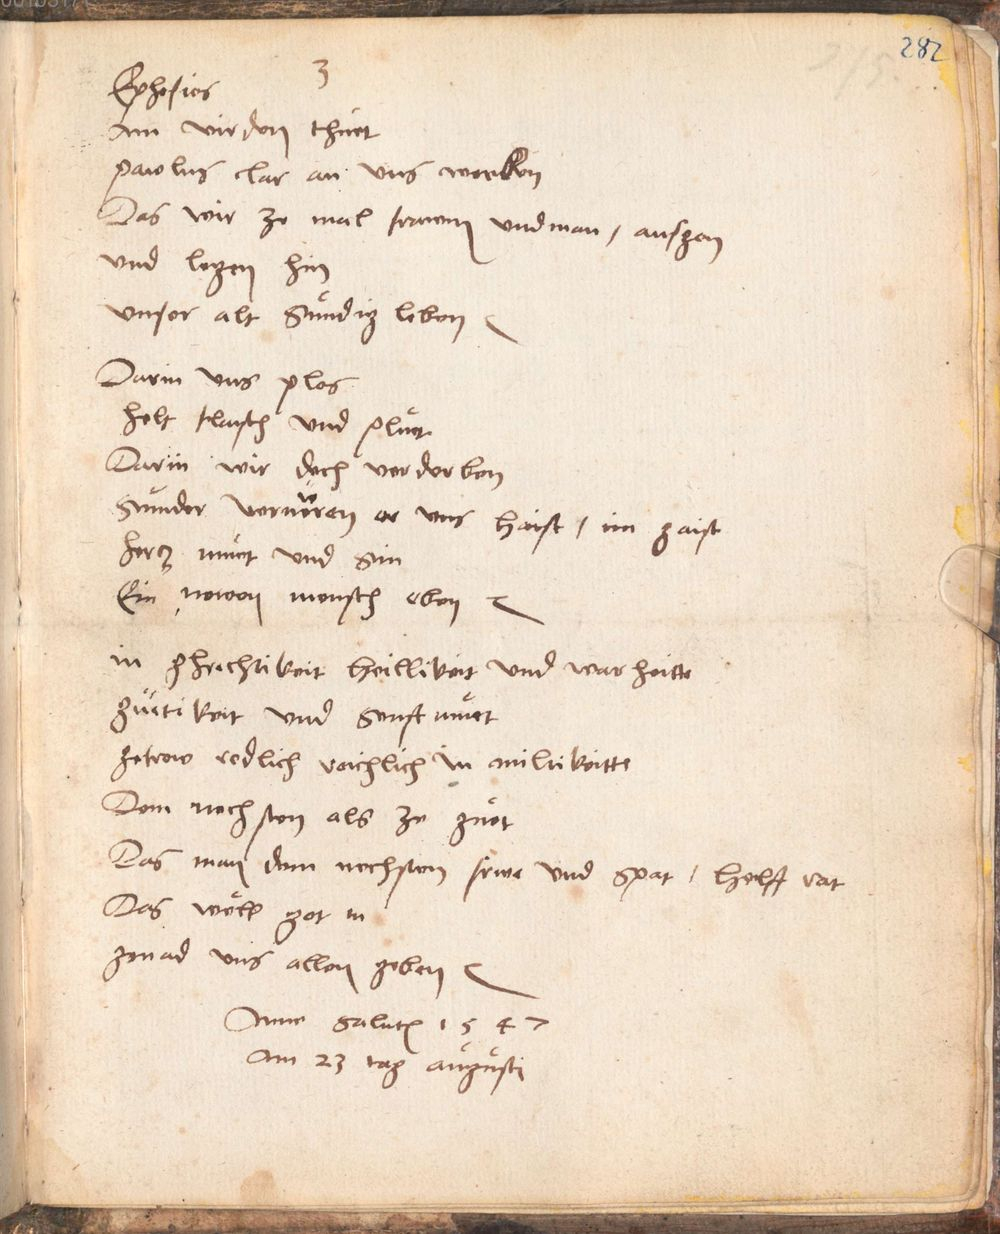 282
3
Ephesios
am virden thuet
pawlus clar an uns wercken
Das wir ze mal frawen und man / ausgen
und legen hin
unser alt sündig leben
Darin uns plos
helt flaisch und pluet
Darin wir doch verderben
Sunder vernewren er uns haist / im gaist
hercz muet und sin
Ein newen mensch eben
in ghrechtikeit heillikeit und warheitte
guetikeit und senftmuet
getrew redlich reichlich in miltikeitte
Dem nechsten als ze guet
Das man dem nechsten frue und spat / helff rat
Das wöll got in
genad uns allen geben
Anno salutis 1547
Am 23 tag augusti